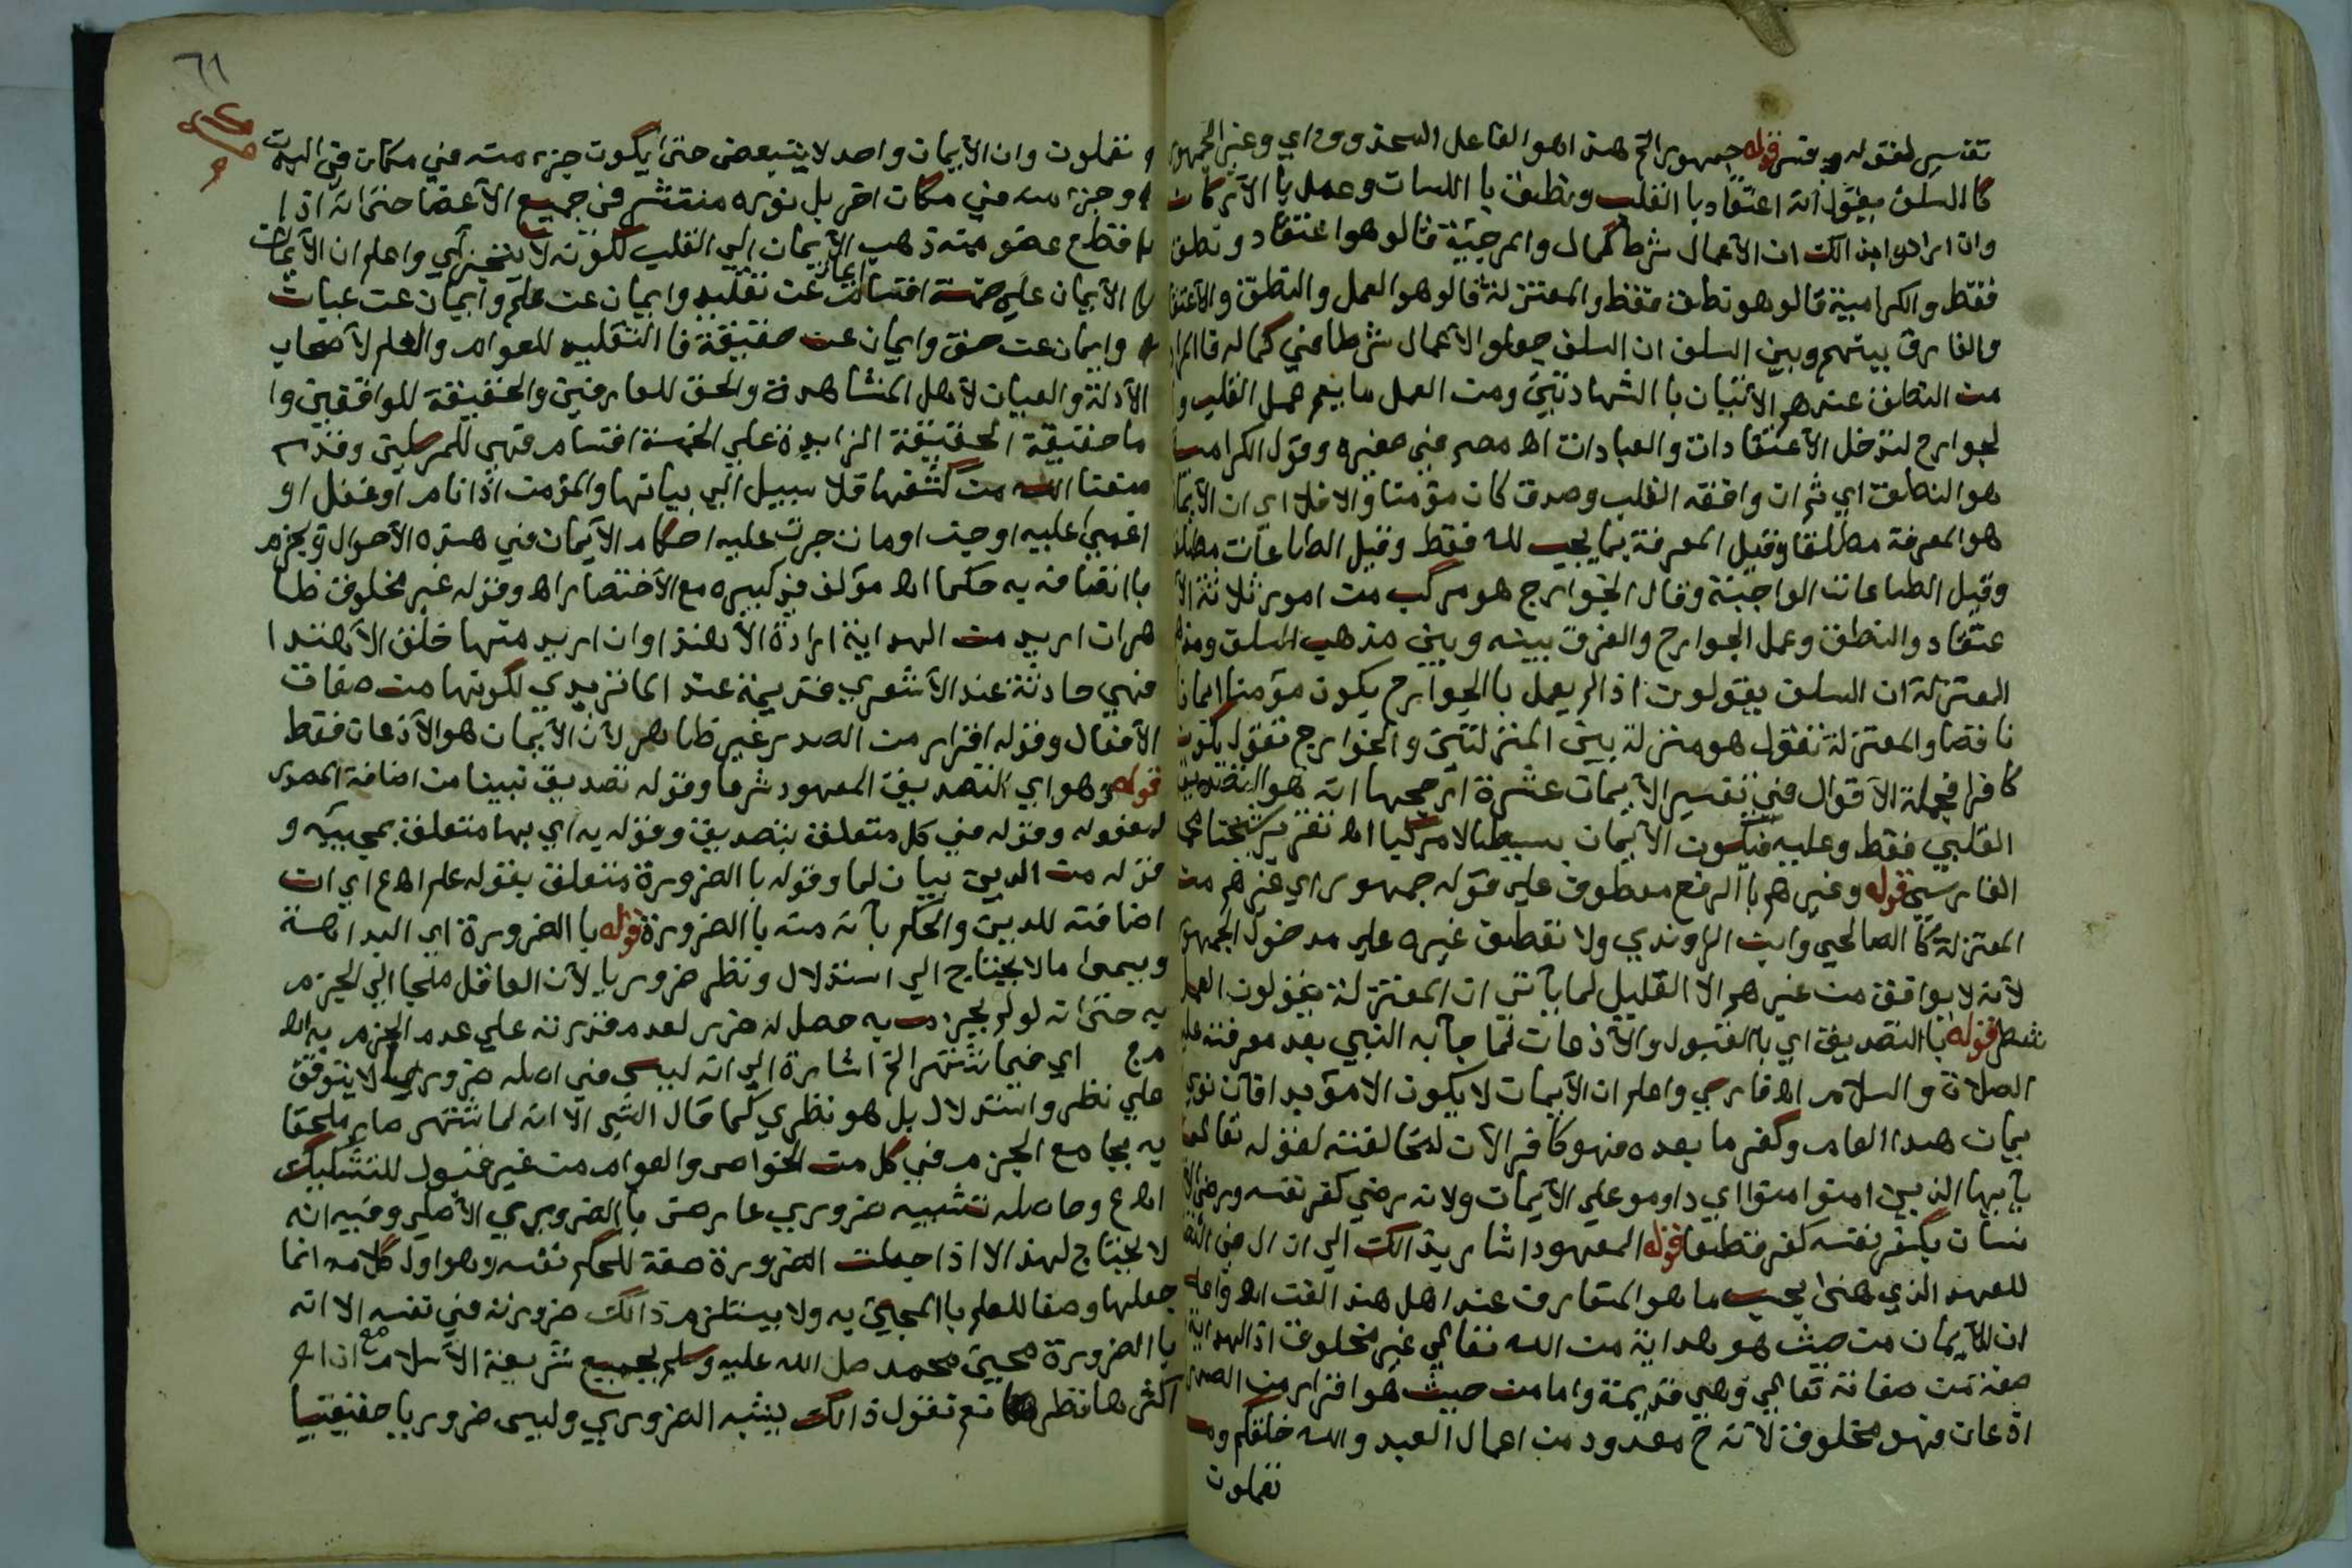 تفسير لقوله وفسر قوله جمهور الخ هذا هو الفاعل المحذوف اي وغير الجمهور
كا السلف يقول انه اعتقاد با القلب ونطق با اللسان وعمل با الأركان
وان ارادوا بذالك ان الأعمال شرط كمال والمرجئة قالو هو اعتقاد ونطق
فقط والكرامية قالو هو نطق فقط والمعتزلة قالو هو العمل والنطق والأعتقا
والفارق بينهم وبين السلف ان السلف جعلو الأعمال شرطا في كماله فا المراد
من النطق عندهم الأتيان با الشهادتين ومن العمل ما يعم عمل القلب وا
لجوارح لتدخل الأعتقادات والعبادات اه مصر في صغيره وقول الكرامية
هو النطق اي ثم ان وافقه القلب وصدق كان مؤمنا والا فلا اي ان الأيمان
هو المعرفة مطلقا وقيل المعرفة بما يجب لله فقط وقيل الطاعات مطلقا
وقيل الطاعات الواجبة وقال الخوارج هو مركب من امور ثلاثة الأ
عتقاد والنطق وعمل الجوارح والفرق بينه وبين مذهب السلف ومذهب
المعتزلة ان السلف يقولون اذا لم يعمل با الجوارح يكون مؤمنا ايمانا
ناقصا والمعتزلة تقول هو منزلة بين المنزلتين والخوارج تقول يكون
كافرا فجملة الأقوال في تفسير الأيمان عشرة ارجحها انه هو التصديق
القلبي فقط وعليه فيكون الأيمان بسيطا لا مركبا اه تقرير شيخنا اي
الفارسي قوله وغيرهم با الرفع معطوف على قوله جمهور اي غيرهم من
المعتزلة كا الصالحي وابن الراوندي ولا نعطف غيره على مدخول الجمهور
لأنه لا يوافق من غيرهم الا القليل لما يأتي ان المعتزلة يقولون العمل
شطر قوله با التصديق اي با القبول والأذعان لما جآ به النبي بعد معرفته عليه
الصلاة والسلام اه فارسي واعلم ان الأيمان لا يكون الا مؤبدا فان نوى
يمان هذا العام وكفر ما بعده فهو كافر الآن لمخالفته لقوله تعالى
يأيها الذين امنوا امنوا اي داومو على الأيمان ولانه رضي كفر نفسه ورضى الأ
نسان بكفر نفسه كفر قطعا قوله المعهود اشار بذالك الى ان ال في النص
للعهد الذي هنى بحسب ما هو المتعارف عند اهل هذا الفن اه واعلم
ان للأيمان من حيث هو هداية من الله تعالى غير مخلوق اذ الهداية
صفة من صفاته تعالى وهي قديمة واما من حيث هو اقرار من الصدر
اذعان فهو مخلوق لأنه ح معدود من اعمال العبد والله خلقكم وما
تعملون
٦١
تعملون وان الأيمان واحد لا يتبعض حتى يكون جزء منه في مكان في البدن
وجزء منه في مكان اخر بل نوره منتشر في جميع الأعضا حتى انه اذا
قطع عضو منه ذهب الأيمان الى القلب لكونه لا يتجزء اي واعلم ان الأيمان
الأيمان على خمسة اقسام ايمان عن تقليد وايمان عن علم وايمان عن عيان
وايمان عن حق وايمان عن حقيقة فا التقليد للعوام والعلم لأصحاب
الأدلة والعيان لأهل المشاهدة والحق للعارفين والحقيقة للواقفين وا
ما حقيقة الحقيقة الزايدة على الخمسة اقسام فهي للمرسلين وقد
منعنا الله من كشفها فلا سبيل الى بيانها والمؤمن اذا نام او غفل او
اغمى عليه او جن او مات جرت عليه احكام الأيمان في هذه الأحوال ويجزم
با اتصافه به حكما اه مؤلف في كبيره مع الأختصار اه وقوله غير مخلوق ظا
هر ان اريد من الهداية ارادة الأهتدا وان اريد منها خلق الأهتدا
فهي حادثة عند الأشعري قديمة عند الماتريدي لكونها من صفات
الأفعال وقوله اقرار من الصدر غير ظاهر لأن الأيمان هو الأذعان فقط
قوله وهو اي التصديق المعهود شرعا وقوله تصديق نبينا من اضافة المصدر
لمفعوله وقوله في كل متعلق بتصديق وقوله به اي بها متعلق بمجيئه و
قوله من الدين بيان لما وقوله با الضرورة متعلق بقوله علم اه ع اي ان
اضافته للدين والحكم بأنه منه با الضرورة قوله با الضرورة اي البداهة
ويسمى ما لا يحتاج الى استدلال ونظر ضروريا لأن العاقل ملجا الى الجزم
به حتى انه لو لم يجزم به حصل له ضرر لعدم قدرته على عدم الجزم به اه
مج اي فيما اشتهر الخ اشارة الى انه ليس في اصله ضروري لا يتوقف
على نظر واستدلال بل هو نظري كما قال الش الا انه لما اشتهر صار ملحقا
به بجامع الجزم في كل من الخواص والعوام من غير قبول للتشكيك
اه ع وحاصله تشبيه ضروري عارض با الضروري الأصلي وفيه انه
لا يحتاج لهذا الا اذا جعلت الضرورة صفة للحكم نفسه وهو اول كلامه انما
جعلها وصفا للعلم با المجيئ به ولا يستلزم ذالك ضرورته في نفسه الا انه
با الضرورة مجيئ محمد صلى الله عليه وسلم بجميع شريعة الأسلام مع ان
اكثرها نظر نعم نقول ذالك يشبه الضروري وليس ضروريا حقيقيا